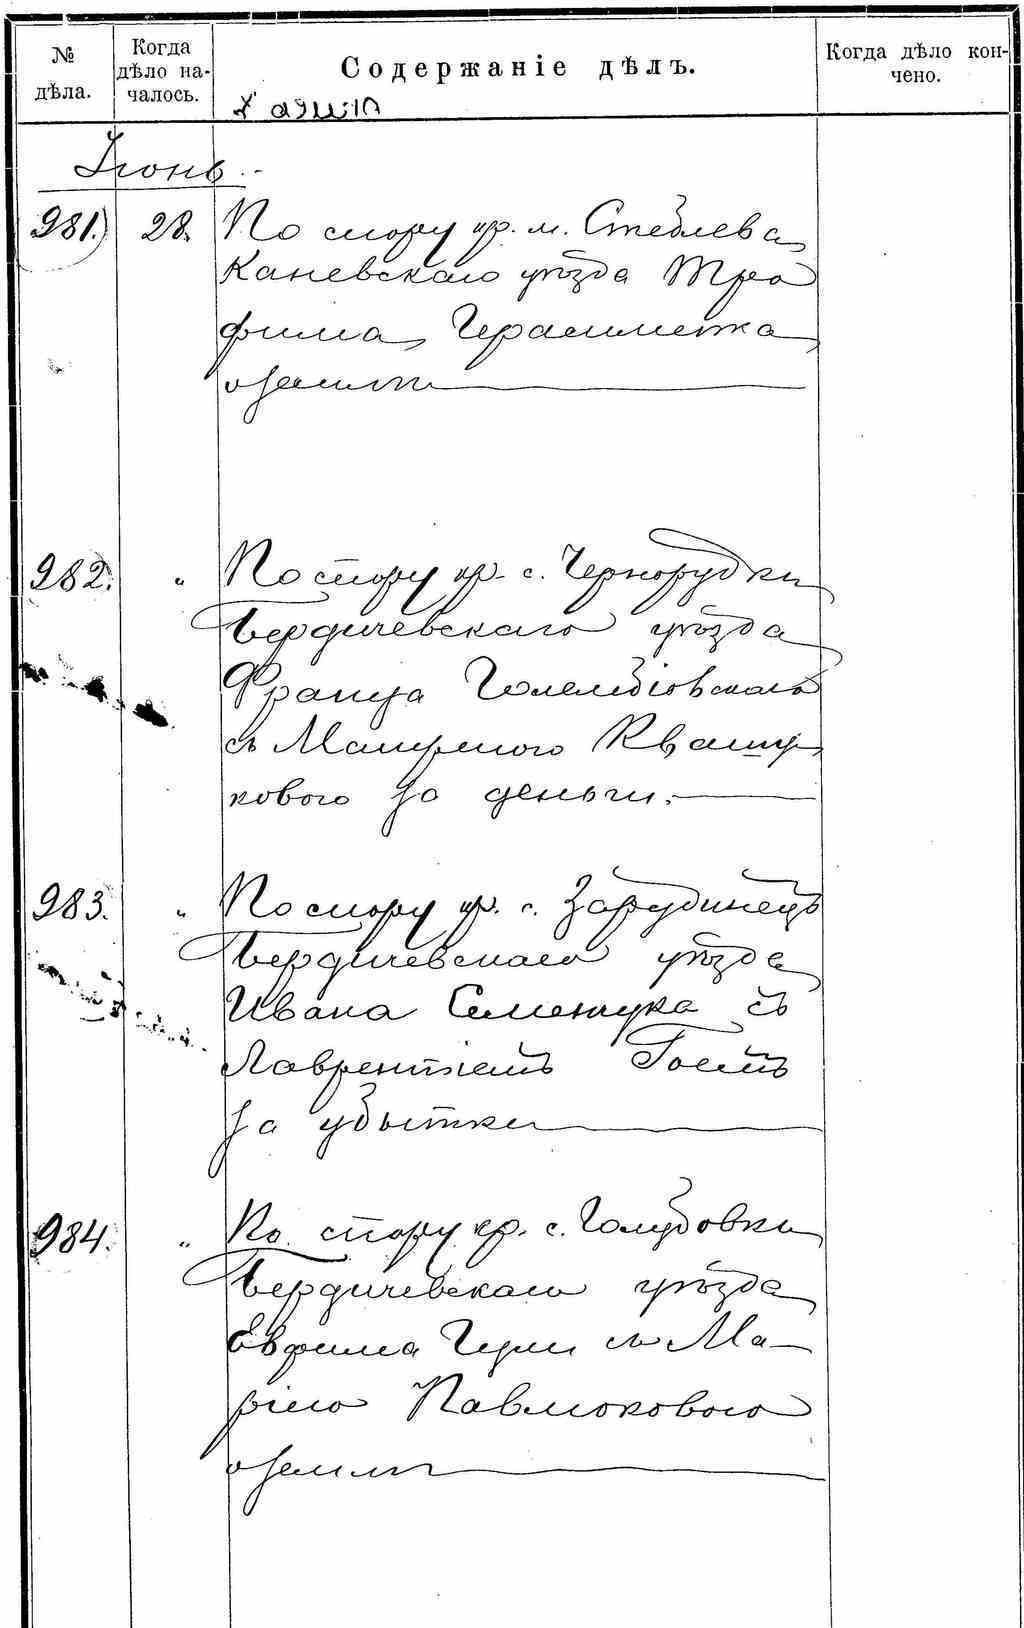 № дѣла.
Когда дѣло началось.
Содержаніе дѣлъ.
Когда дѣло кончено.
Іюнь
981.) 28. По спору кр. м. Стеблева
Каневскаго уѣзда Тро
фима Герасименка
о землѣ
982. " По спору кр. с. Чернорудки
Бердичевскаго уѣзда
Франца Голембіовскаго
съ Матреною
ковою за деньги.
983. " По спору кр. с. Зарудинецъ
Бердичевскаго уѣзда
Ивана Семенчука съ
Лаврентіемъ
за убытки
984. " По спору кр. с. Голубовки
Бердичевскаго уѣзда
Евфима съ Ма-
ріею Павлюковою
о землѣ